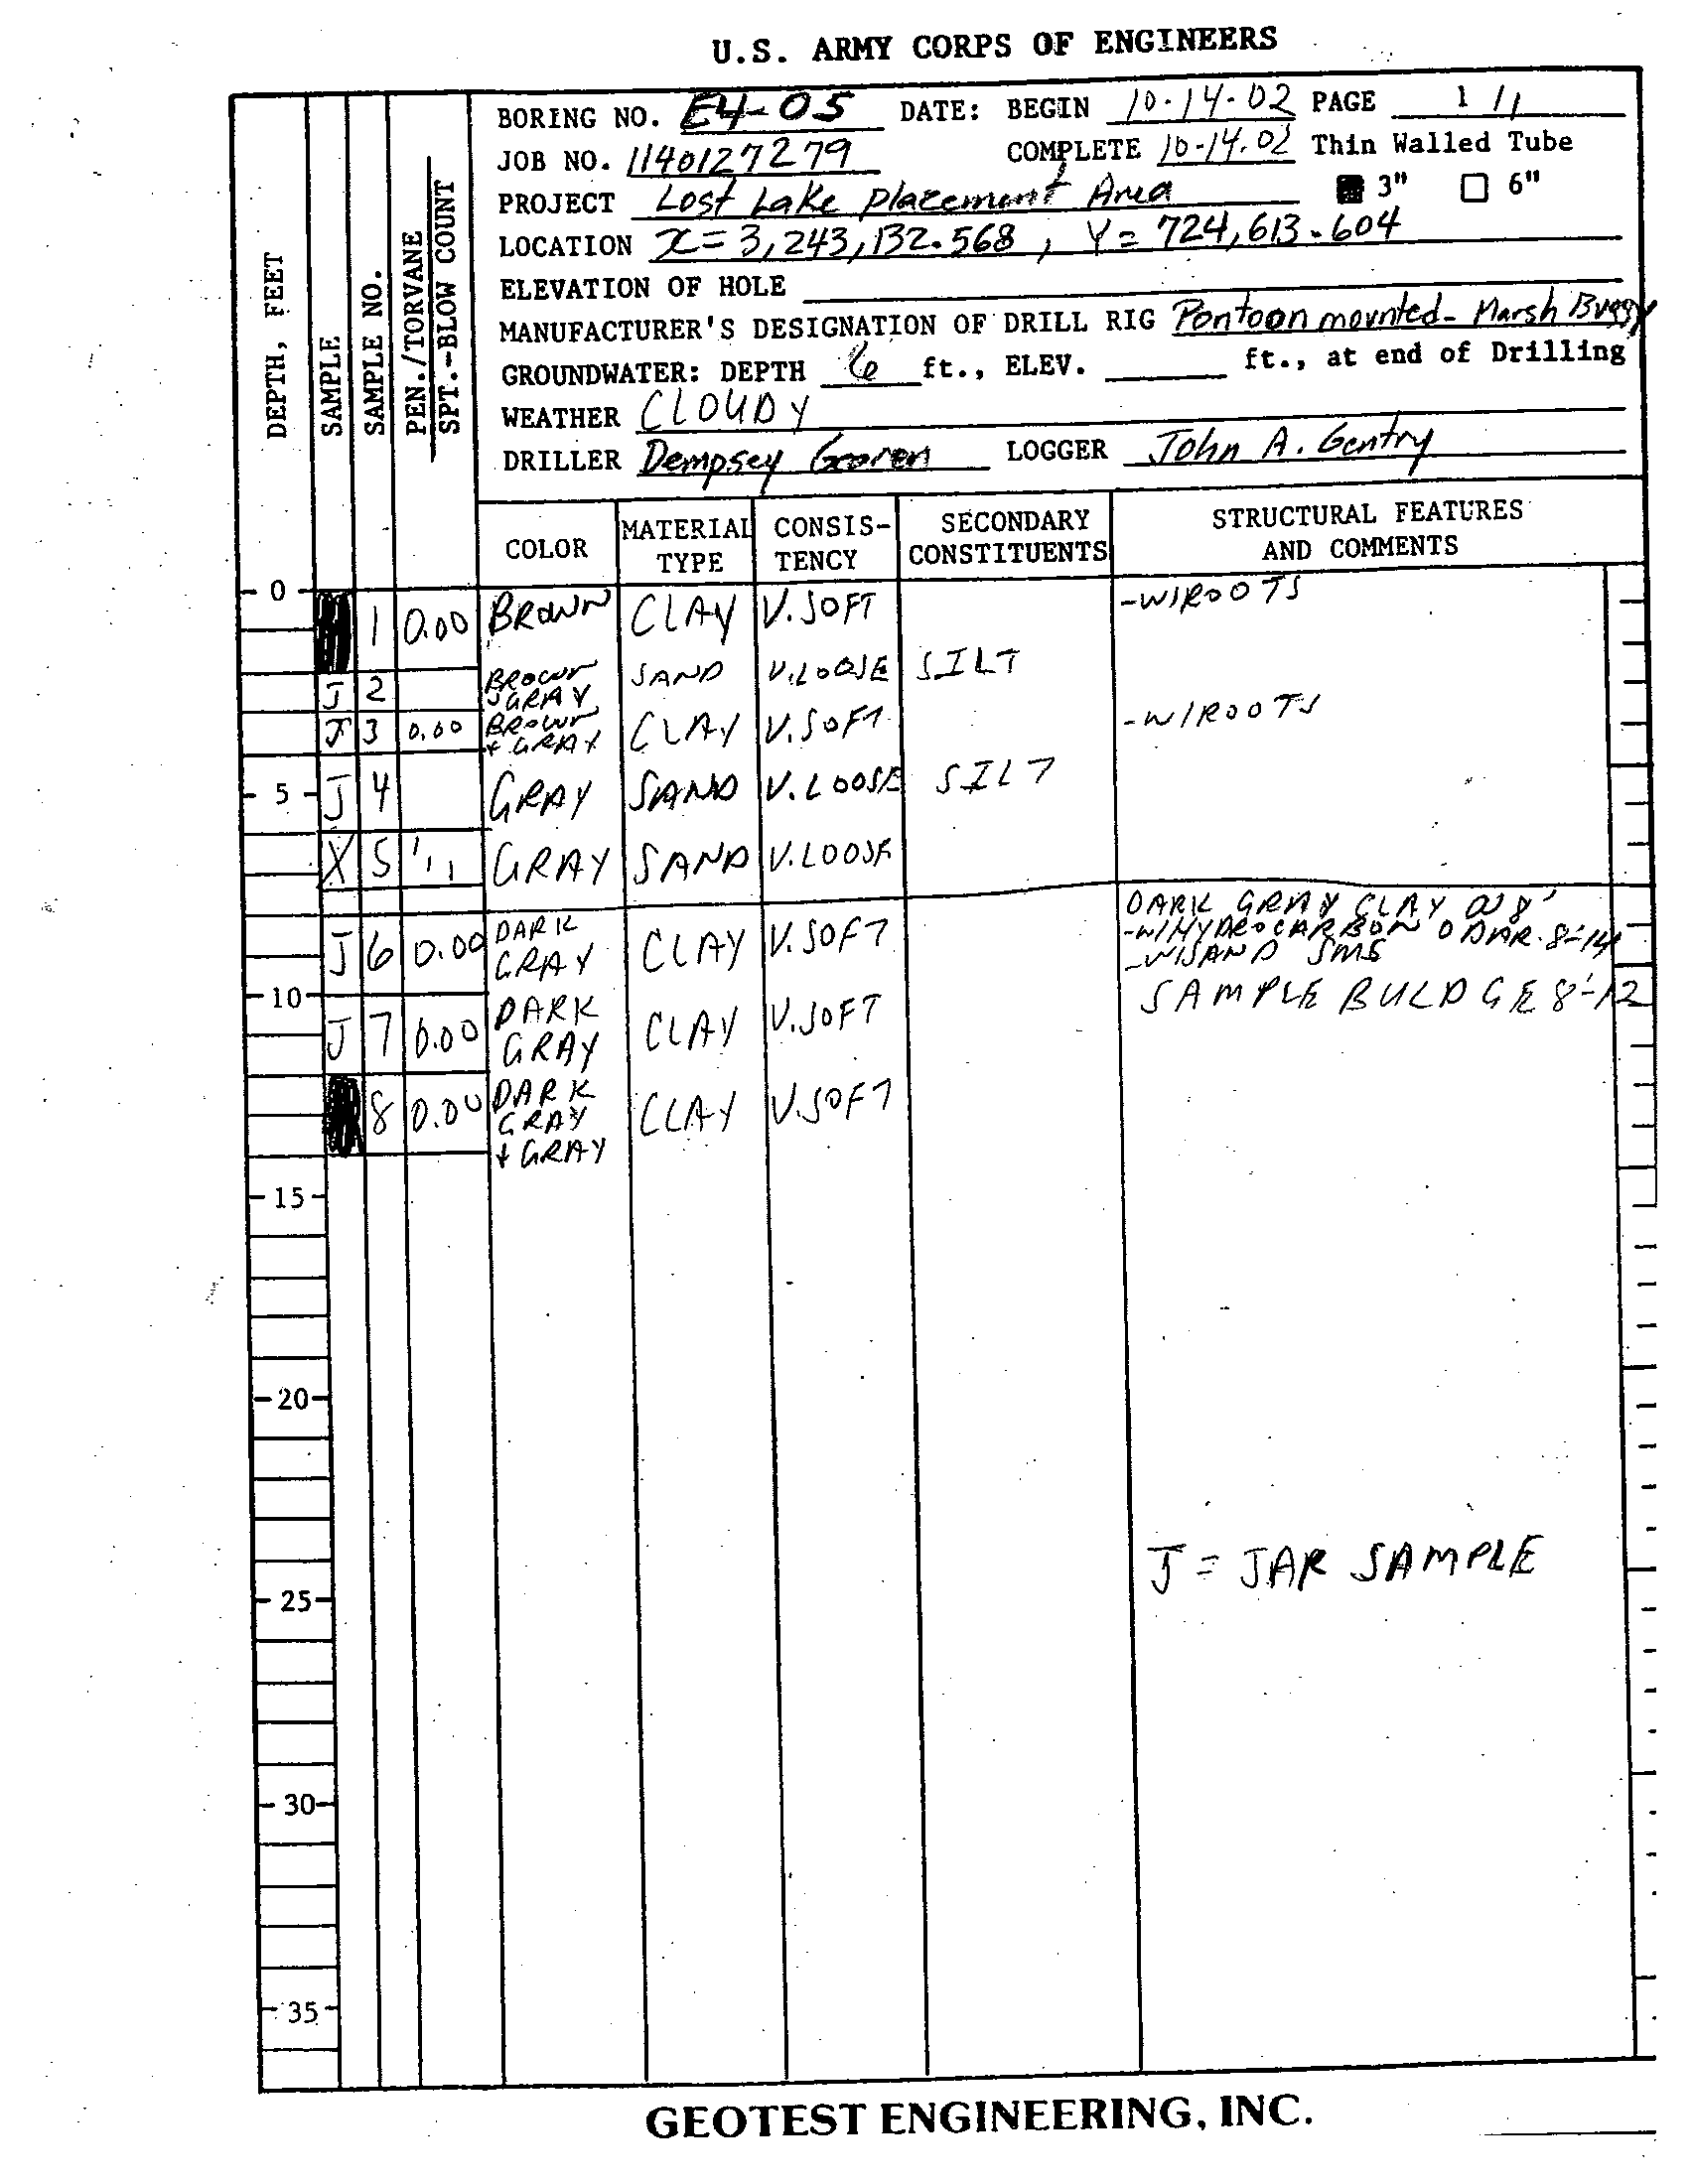 U.S. ARMY CORPS OF ENGINEERS
BORING NO. E4-05 DATE: BEGIN 10-14-02 PAGE 1 / 1
JOB NO. 1140127279 COMPLETE 10-14-02 Thin Walled Tube
PROJECT Lost Lake Placement Area 3" 6"
LOCATION X= 3,243,132.568 , Y= 724,613.604
ELEVATION OF HOLE
MANUFACTURER'S DESIGNATION OF DRILL RIG Pontoon mounted - Marsh Buggy
GROUNDWATER: DEPTH 6 ft., ELEV. ft., at end of Drilling
WEATHER CLOUDY
DRILLER Dempsey LOGGER John A. Gentry
DEPTH, FEET
SAMPLE
SAMPLE NO.
PEN./TORVANE
SPT.-BLOW COUNT
COLOR MATERIAL TYPE CONSIS-TENCY SECONDARY CONSTITUENTS STRUCTURAL FEATURES AND COMMENTS
0
1 0.00 BROWN CLAY V.SOFT -W/ROOTS
J 2 BROWN & GRAY SAND V.LOOSE SILT
J 3 0.00 BROWN + GRAY CLAY V.SOFT -W/ROOTS
5 J 4 GRAY SAND V.LOOSE SILT
X 5 1/11 GRAY SAND V.LOOSE
J 6 0.00 DARK GRAY CLAY V.SOFT DARK GRAY CLAY @ 8'
-W/HYDROCARBON ODAR 8'-14
-W/SAND SMS
10 SAMPLE BULDGE 8'-12
J 7 0.00 DARK GRAY CLAY V.SOFT
8 0.00 DARK GRAY + GRAY CLAY V.SOFT
15
20
J = JAR SAMPLE
25
30
35
GEOTEST ENGINEERING, INC.